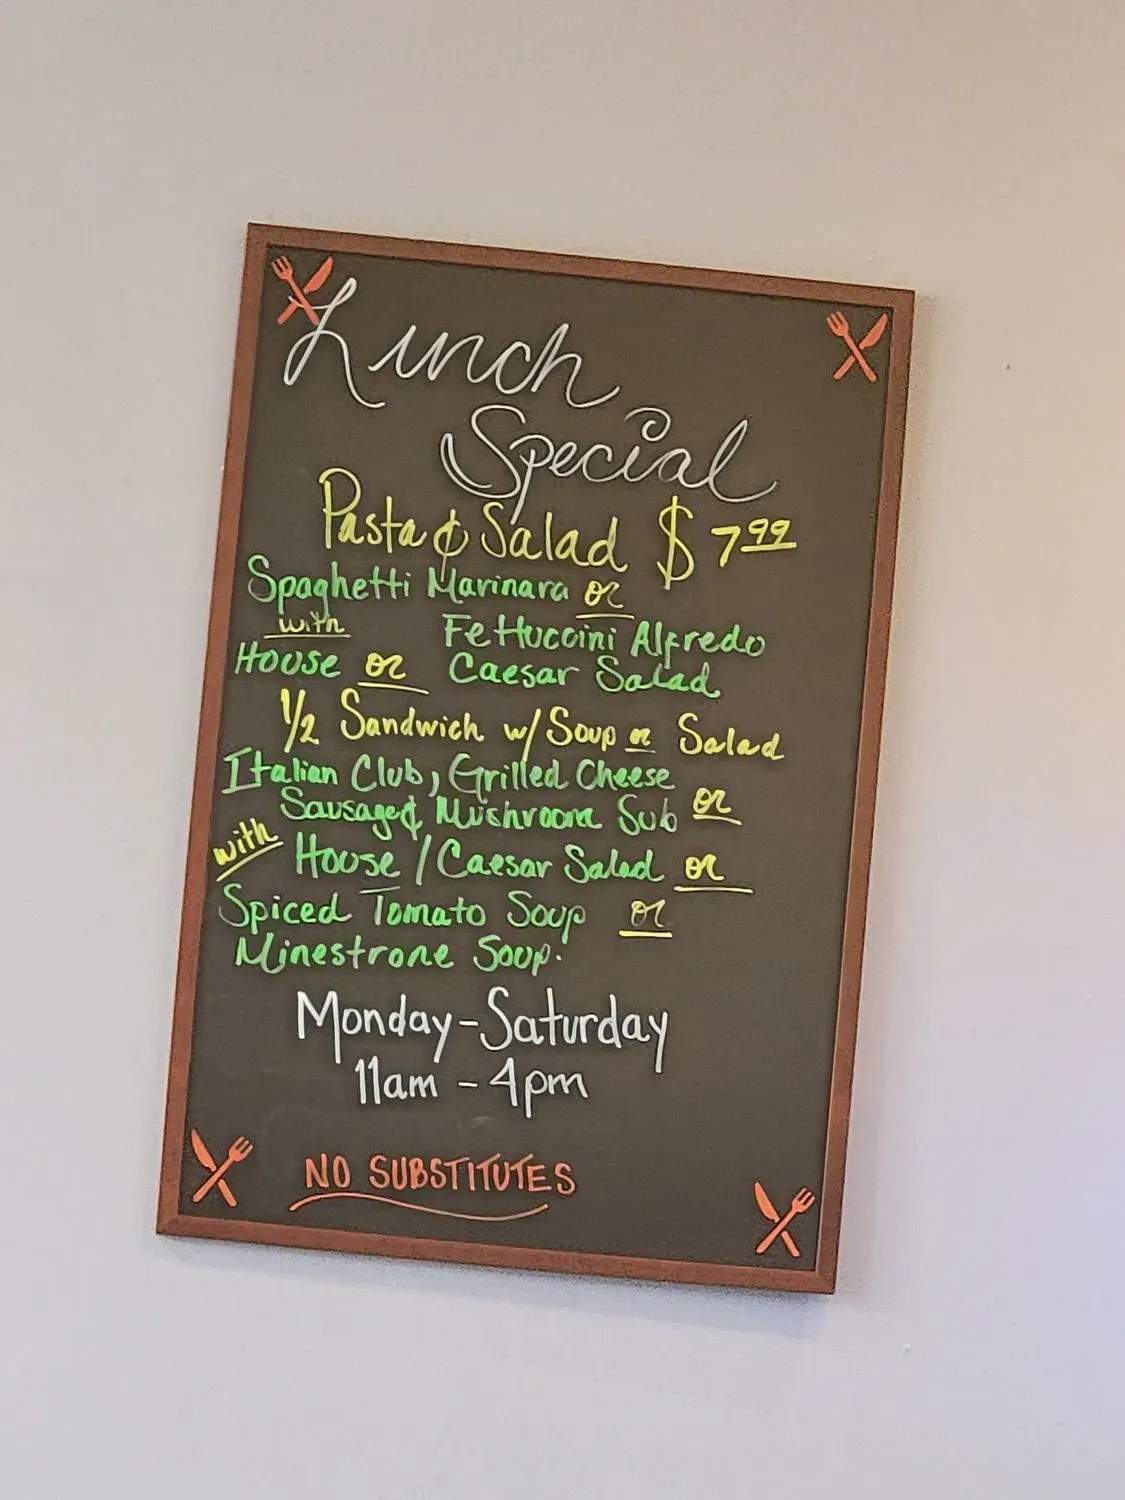 Lunch
Special
Pasta & Salad $7.99
Spaghetti Marinara or
with Fettuccini Alfredo
House or Caesar Salad
1/2 Sandwich w/ Soup or Salad
Italian Club, Grilled Cheese
Sausage & Mushroom Sub or
with House / Caesar Salad or
Spiced Tomato Soup or
Minestrone Soup.
Monday-Saturday
11am - 4pm
NO SUBSTITUTES